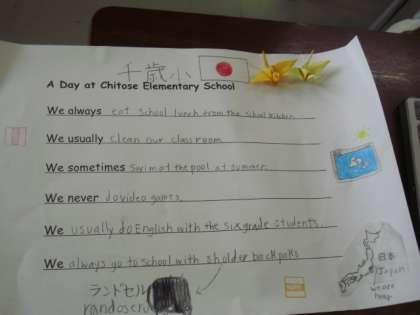 千歳小
A Day at Chitose Elementary School
We always eat school lunch from the school kitchin
We usually clean our classroom
We sometimes swim at the pool at summer
We never do video games.
We usually do English with the six grade students
We always go to school with sholder backpaks
ランドセル
日本
(Japan)
we are